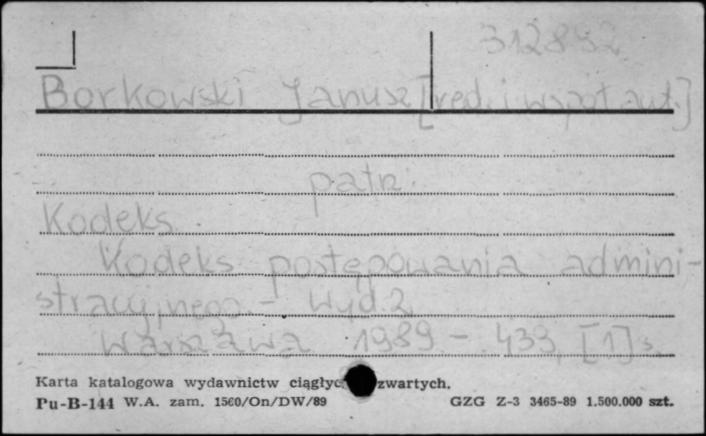 312832
Borkowski Janusz [red. i współ. aut.]
patrz:
Kodeks
Kodeks postępowania admini-
stracyjnego. - Wyd. 2
Warszawa 1989. - 433, [1] s.
Karta katalogowa wydawnictw zwartych.
Pu-B-144 W.A. zam. 1560/On/DW/89 GZG Z-3 3465-89 1.500.000 szt.